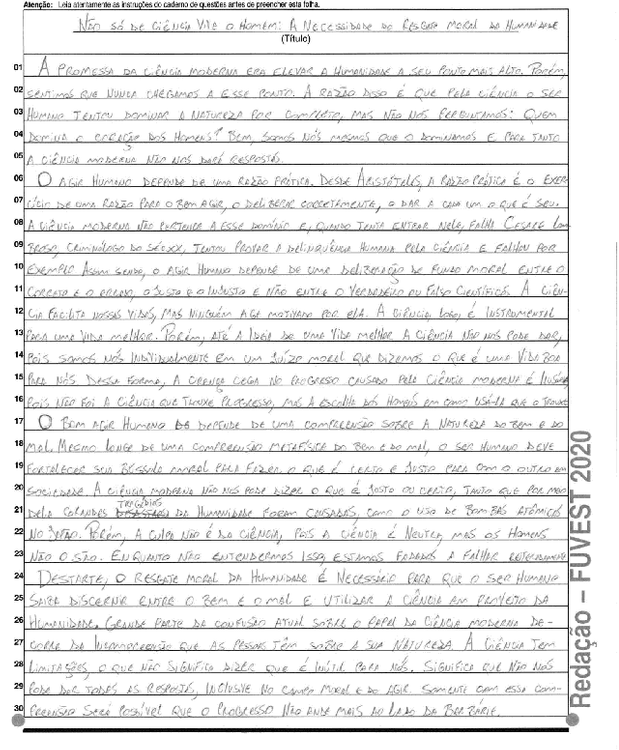 Atenção: Leia atentamente as instruções do caderno de questões antes de preencher esta folha.
NÃO SÓ DE CIÊNCIA VIVE O HOMEM: A NECESSIDADE DO RESGATE MORAL DA HUMANIDADE
(Título)
01 A PROMESSA DA CIÊNCIA MODERNA ERA ELEVAR A HUMANIDADE A SEU PONTO MAIS ALTO. PORÉM,
02 SENTIMOS QUE NUNCA CHEGAMOS A ESSE PONTO. A RAZÃO DISSO É QUE PELA CIÊNCIA O SER
03 HUMANO TENTOU DOMINAR A NATUREZA POR COMPLETO, MAS NÃO NOS PERGUNTAMOS: QUEM
04 DOMINA O CORAÇÃO DOS HOMENS? BEM, SOMOS NÓS MESMOS QUE O DOMINAMOS E PARA TANTO
05 A CIÊNCIA MODERNA NÃO NOS DARÁ RESPOSTAS.
06 O AGIR HUMANO DEPENDE DE UMA RAZÃO PRÁTICA. DESDE ARISTÓTELES, A RAZÃO PRÁTICA É O EXER-
07 CÍCIO DE UMA RAZÃO PARA O BEM AGIR, O DELIBERAR CORRETAMENTE, O DAR A CADA UM O QUE É SEU.
08 A CIÊNCIA MODERNA NÃO PERTENCE A ESSE DOMÍNIO E, QUANDO TENTA ENTRAR NELE, FALHA. CESARE LOM-
09 BROSO, CRIMINÓLOGO DO SÉC XX, TENTOU PROVAR A DELINQUÊNCIA HUMANA PELA CIÊNCIA E FALHOU POR
10 EXEMPLO. ASSIM SENDO, O AGIR HUMANO DEPENDE DE UMA DELIBERAÇÃO DE FUNDO MORAL ENTRE O
11 CORRETO E O ERRADO, O JUSTO E O INJUSTO E NÃO ENTRE O VERDADEIRO OU FALSO CIENTÍFICOS. A CIÊN-
12 CIA FACILITA NOSSAS VIDAS, MAS NINGUÉM AGE MOTIVADO POR ELA. A CIÊNCIA, LOGO, É INSTRUMENTAL
13 PARA UMA VIDA MELHOR. PORÉM, ATÉ A IDEIA DE UMA VIDA MELHOR A CIÊNCIA NÃO NOS PODE DAR,
14 POIS SOMOS NÓS INDIVIDUALMENTE EM UM JUÍZO MORAL QUE DIZEMOS O QUE É UMA VIDA BOA
15 PARA NÓS. DESSA FORMA, A CRENÇA CEGA NO PROGRESSO CAUSADO PELA CIÊNCIA MODERNA É ILUSÓRIA
16 POIS NÃO FOI A CIÊNCIA QUE TROUXE PROGRESSO, MAS A ESCOLHA DOS HOMENS EM COMO USÁ-LA QUE O TROUXE
17 O BEM AGIR HUMANO DEPENDE DE UMA COMPREENSÃO SOBRE A NATUREZA DO BEM E DO
18 MAL. MESMO LONGE DE UMA COMPREENSÃO METAFÍSICA DO BEM E DO MAL, O SER HUMANO DEVE
19 FORTALECER SUA BÚSSOLA MORAL PARA FAZER O QUE É CERTO E JUSTO PARA COM O OUTRO EM
20 SOCIEDADE. A CIÊNCIA MODERNA NÃO NOS PODE DIZER O QUE É JUSTO OU CERTO, TANTO QUE POR MEIO
21 DELA GRANDES TRAGÉDIAS DA HUMANIDADE FORAM CAUSADAS, COMO O USO DE BOMBAS ATÔMICAS
22 NO JAPÃO. PORÉM, A CULPA NÃO É DA CIÊNCIA, POIS A CIÊNCIA É NEUTRA, MAS OS HOMENS
23 NÃO O SÃO. ENQUANTO NÃO ENTENDERMOS ISSO, ESTAMOS FADADOS A FALHAR
24 DESTARTE, O RESGATE MORAL DA HUMANIDADE É NECESSÁRIO PARA QUE O SER HUMANO
25 SAIBA DISCERNIR ENTRE O BEM E O MAL E UTILIZAR A CIÊNCIA EM PROVEITO DA
26 HUMANIDADE. GRANDE PARTE DA CONFUSÃO ATUAL SOBRE O PAPEL DA CIÊNCIA MODERNA DE-
27 CORRE DA INCOMPREENSÃO QUE AS PESSOAS TÊM SOBRE A SUA NATUREZA. A CIÊNCIA TEM
28 LIMITAÇÕES, O QUE NÃO SIGNIFICA DIZER QUE É INÚTIL PARA NÓS. SIGNIFICA QUE NÃO NOS
29 PODE DAR TODAS AS RESPOSTAS, INCLUSIVE NO CAMPO MORAL E DO AGIR. SOMENTE COM ESSA COM-
30 PREENSÃO SERÁ POSSÍVEL QUE O PROGRESSO NÃO ANDE MAIS AO LADO DA BARBÁRIE.
Redação – FUVEST 2020